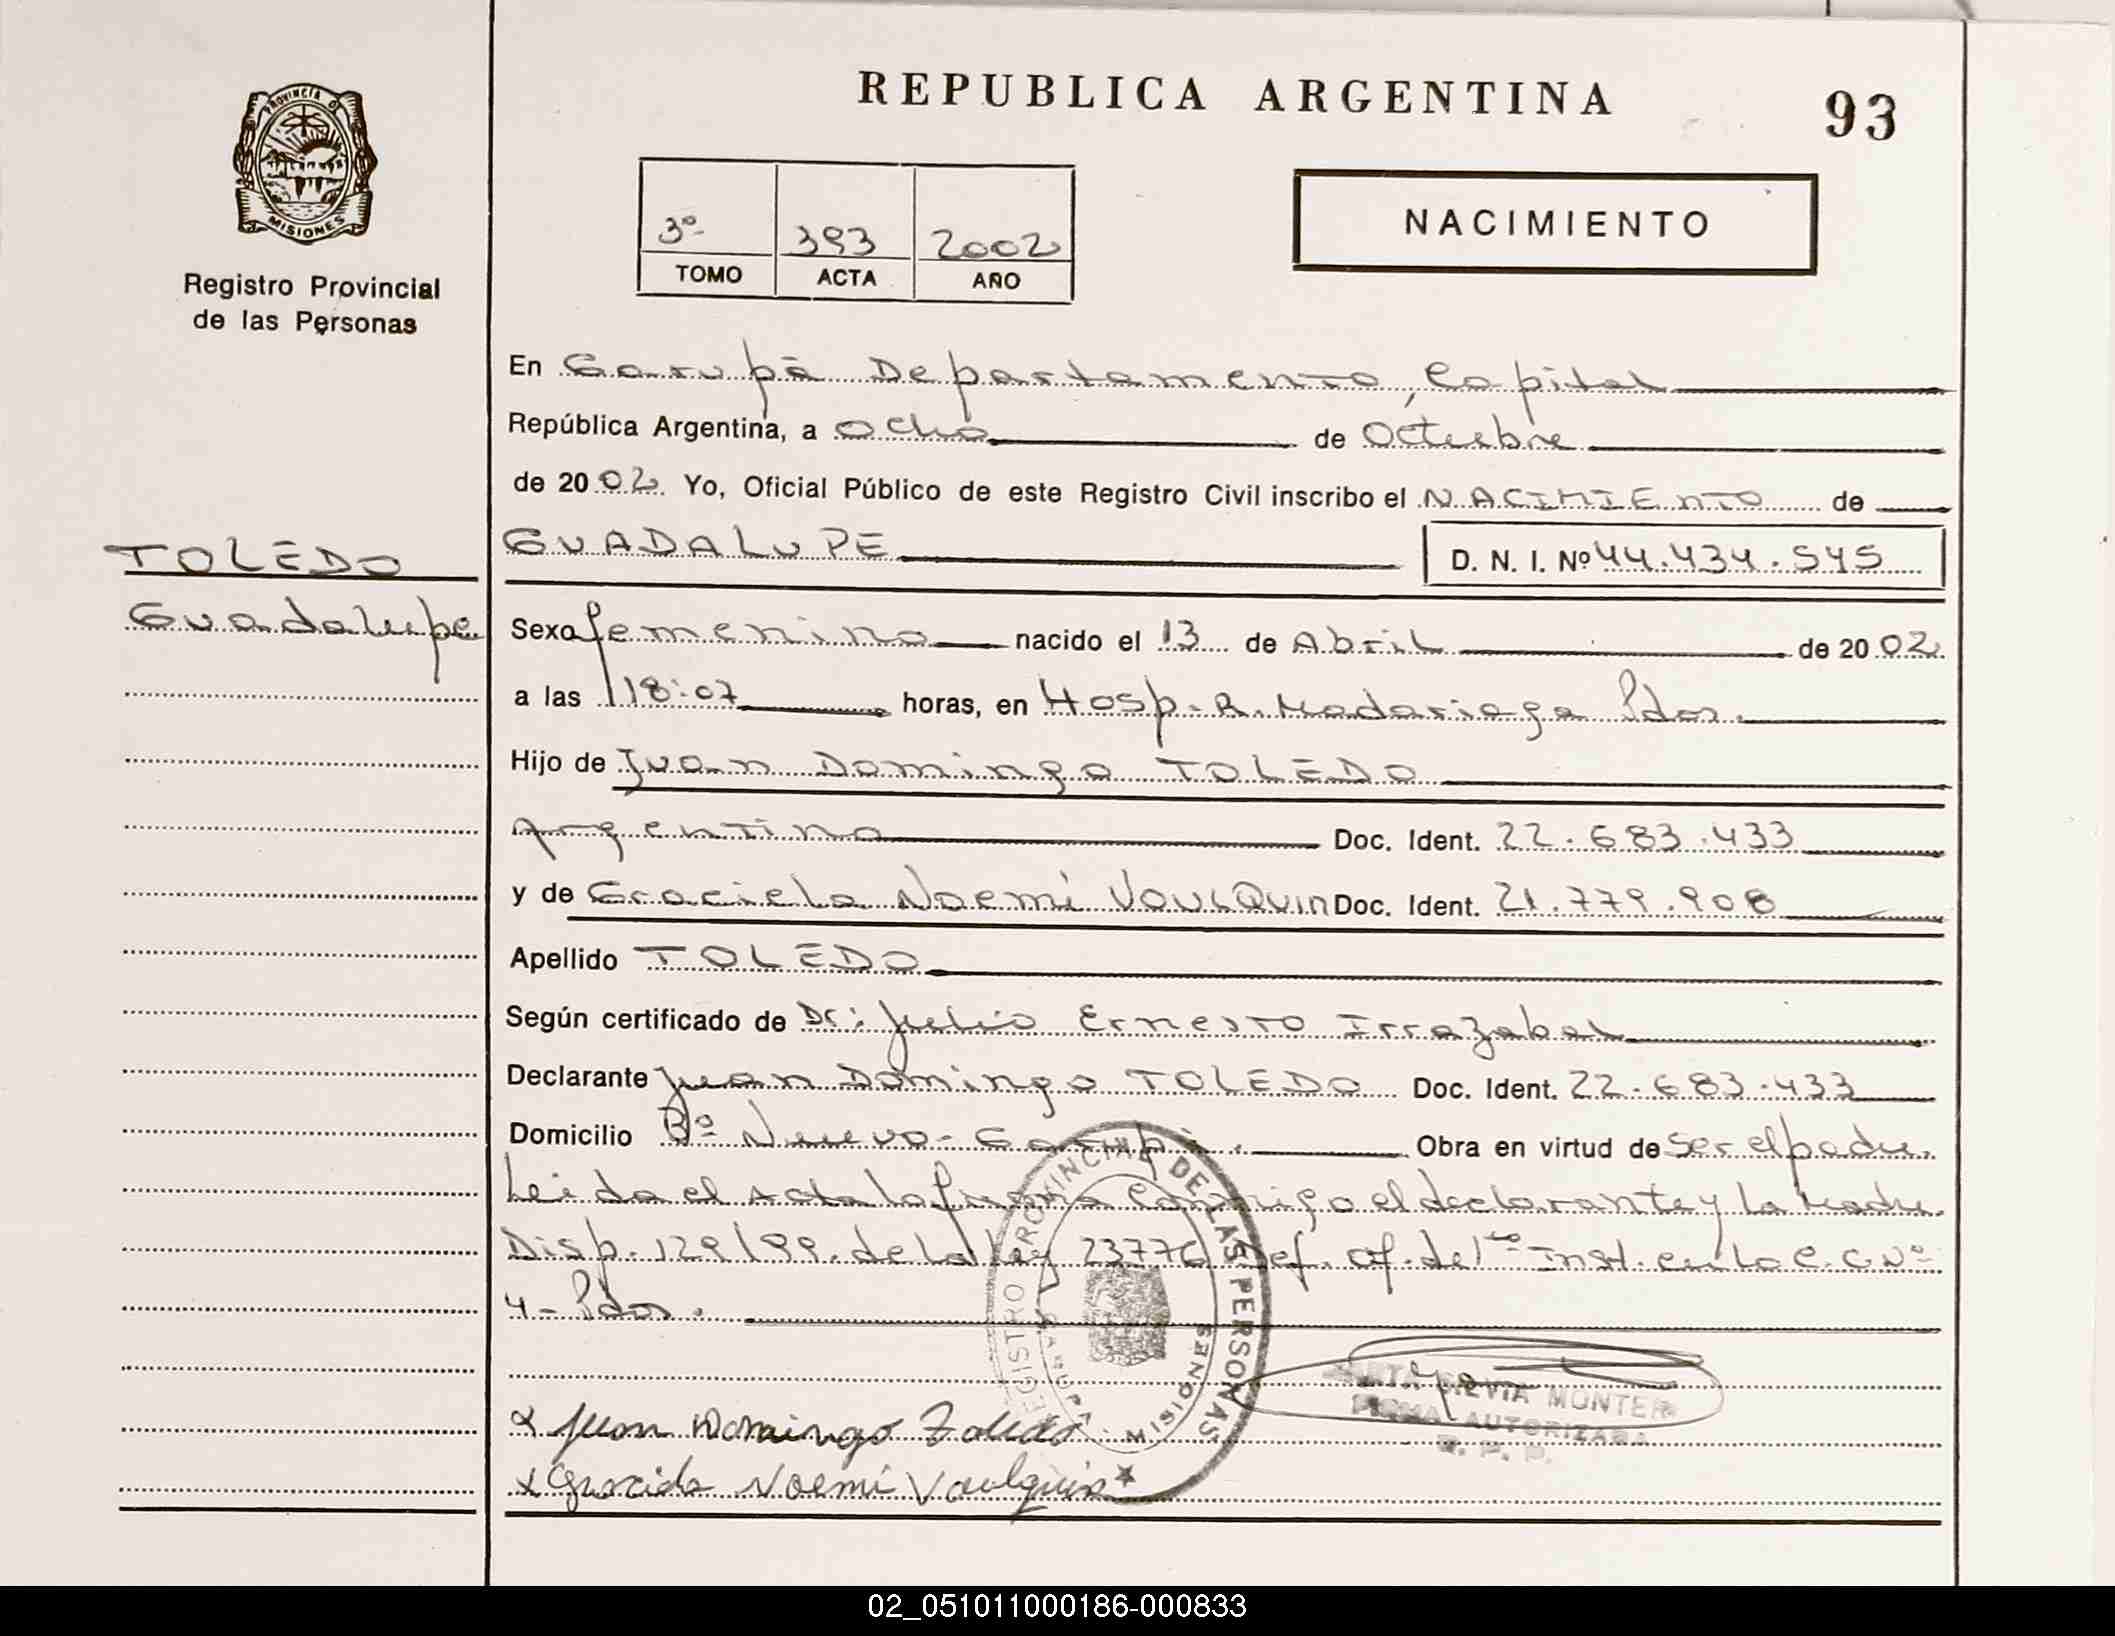 REPUBLICA ARGENTINA
93
PROVINCIA DE
MISIONES
Registro Provincial
de las Personas
3º 393 2002
TOMO ACTA AÑO
NACIMIENTO
En Garupá Departamento, Capital
República Argentina, a ocho de Octubre
de 2002 Yo, Oficial Público de este Registro Civil inscribo el NACIMIENTO de
GUADALUPE D. N. I. Nº 44.434.545
TOLEDO
Guadalupe
Sexo femenino nacido el 13 de Abril de 2002
a las 18:07 horas, en Hosp. R. Madariaga Pdas.
Hijo de Juan Domingo TOLEDO
Argentino Doc. Ident. 22.683.433
y de Graciela Noemí VOULQUIN Doc. Ident. 21.779.908
Apellido TOLEDO
Según certificado de Dr: Julio Ernesto Irrazabal
Declarante Juan Domingo TOLEDO Doc. Ident. 22.683.433
Domicilio Bº Nuevo - Garupá. Obra en virtud de ser el padre.
Leida el Acta la firma conmigo el declarante y la Madre.
Disp. 129/99. de la ley 23776 Def. of. del 1º Inst. en lo C. C Nº
4 - Pdas.
REGISTRO PROVINCIAL DE LAS PERSONAS
GARUPA - MISIONES
SILVIA MONTER
FIRMA AUTORIZADA
R. P. P.
x Juan Domingo Toledo
x Graciela Noemí Voulquin
02_051011000186-000833